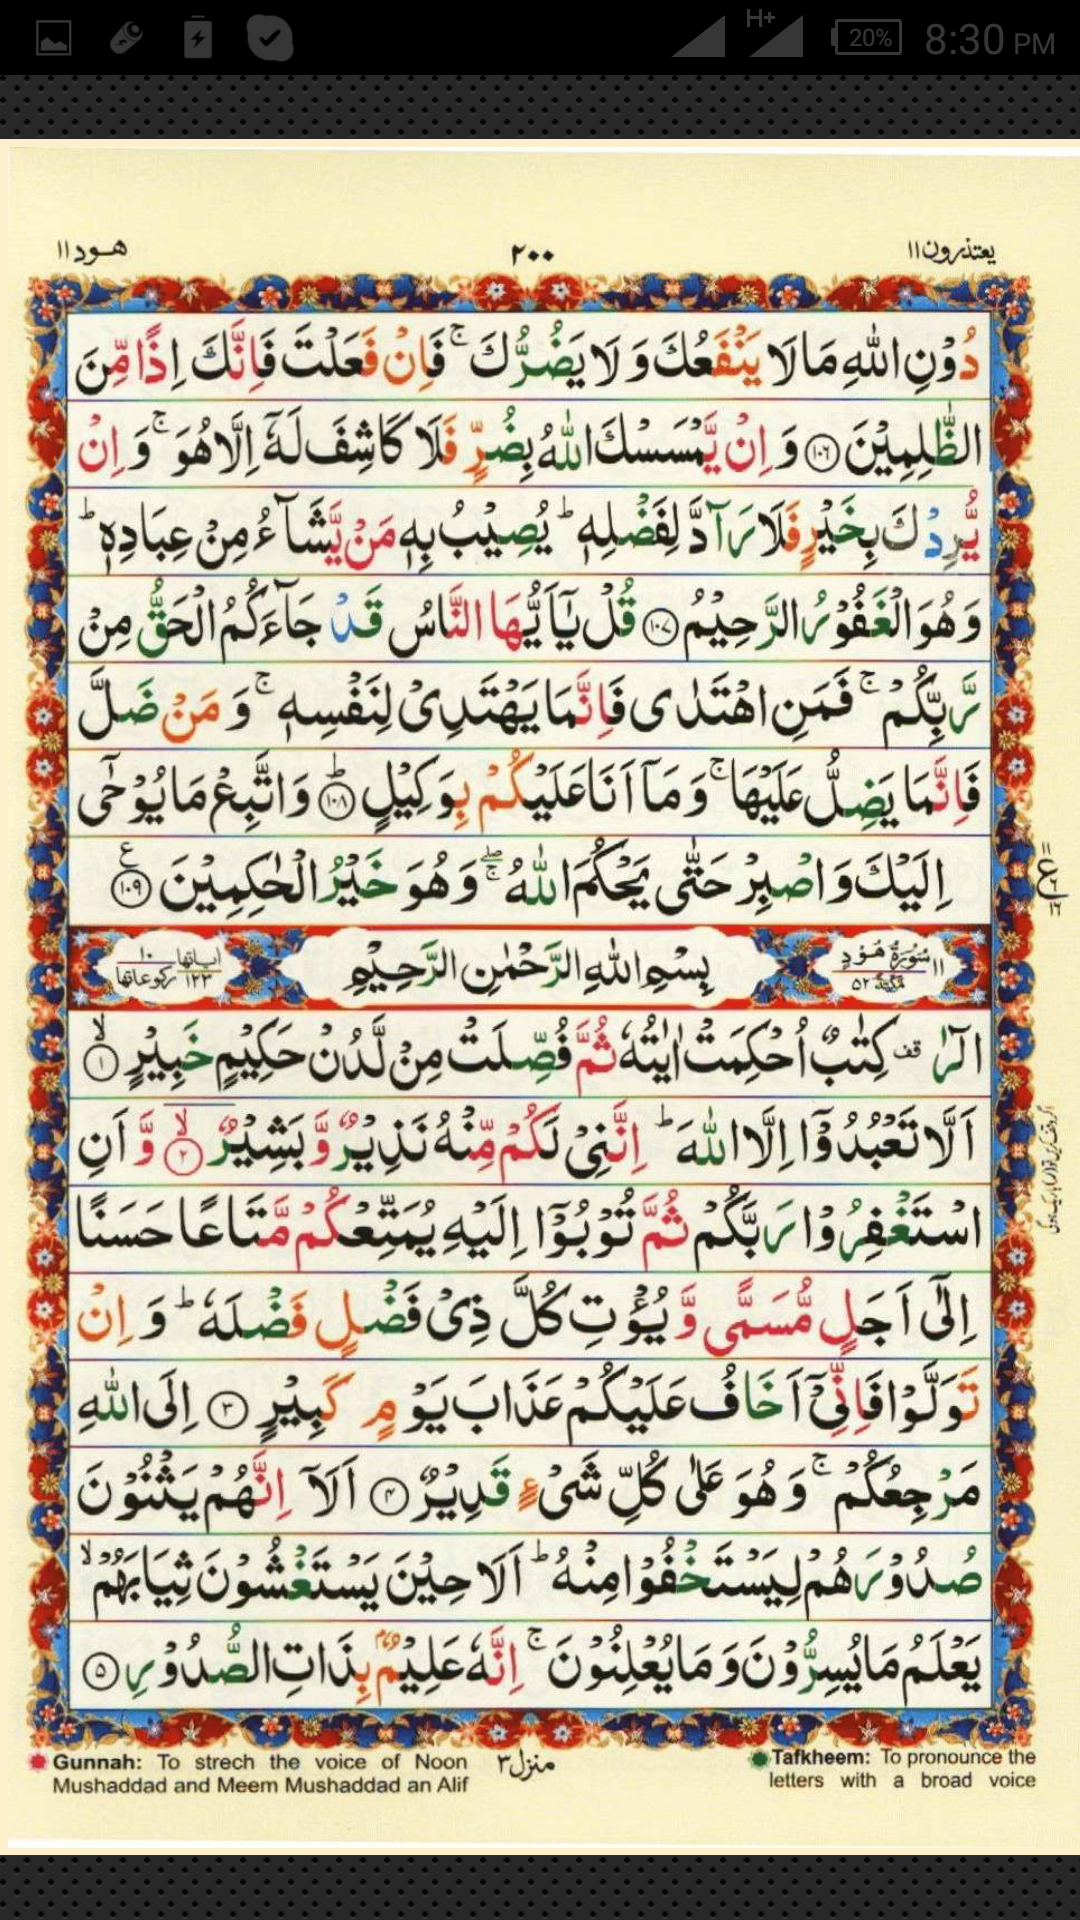 H+
20%
8:30 PM
يعتذرون ١١
٢٠٠
هود ١١
دُوْنِ اللّٰهِ مَا لَا يَنْفَعُكَ وَ لَا يَضُرُّكَ ۚ فَاِنْ فَعَلْتَ فَاِنَّكَ اِذًا مِّنَ
الظّٰلِمِيْنَ ﴿١٠٦﴾ وَ اِنْ يَّمْسَسْكَ اللّٰهُ بِضُرٍّ فَلَا كَاشِفَ لَهٗۤ اِلَّا هُوَ ۚ وَ اِنْ
يُّرِدْكَ بِخَيْرٍ فَلَا رَآدَّ لِفَضْلِهٖ ؕ يُصِيْبُ بِهٖ مَنْ يَّشَآءُ مِنْ عِبَادِهٖ ؕ
وَهُوَ الْغَفُوْرُ الرَّحِيْمُ ﴿١٠٧﴾ قُلْ يٰۤاَيُّهَا النَّاسُ قَدْ جَآءَكُمُ الْحَقُّ مِنْ
رَّبِّكُمْ ۚ فَمَنِ اهْتَدٰى فَاِنَّمَا يَهْتَدِىْ لِنَفْسِهٖ ۚ وَ مَنْ ضَلَّ
فَاِنَّمَا يَضِلُّ عَلَيْهَا ۚ وَ مَاۤ اَنَا عَلَيْكُمْ بِوَكِيْلٍ ؕ ﴿١٠٨﴾ وَاتَّبِعْ مَا يُوْحٰۤى
اِلَيْكَ وَ اصْبِرْ حَتّٰى يَحْكُمَ اللّٰهُ ۚۖ وَ هُوَ خَيْرُ الْحٰكِمِيْنَ ﴿١٠٩﴾ ع
١١ سُوْرَةُ هُوْدٍ مَكِّيَّةٌ ٥٢
بِسْمِ اللّٰهِ الرَّحْمٰنِ الرَّحِيْمِ
اٰیاتها ١٢٣ رکوعاتها ١٠
الٓرٰ قف كِتٰبٌ اُحْكِمَتْ اٰيٰتُهٗ ثُمَّ فُصِّلَتْ مِنْ لَّدُنْ حَكِيْمٍ خَبِيْرٍ ۙ ﴿١﴾
اَلَّا تَعْبُدُوْۤا اِلَّا اللّٰهَ ؕ اِنَّنِىْ لَكُمْ مِّنْهُ نَذِيْرٌ وَّ بَشِيْرٌ ۙ ﴿٢﴾ وَّ اَنِ
اسْتَغْفِرُوْا رَبَّكُمْ ثُمَّ تُوْبُوْۤا اِلَيْهِ يُمَتِّعْكُمْ مَّتَاعًا حَسَنًا
اِلٰٓى اَجَلٍ مُّسَمًّى وَّ يُؤْتِ كُلَّ ذِىْ فَضْلٍ فَضْلَهٗ ؕ وَ اِنْ
تَوَلَّوْا فَاِنِّىْۤ اَخَافُ عَلَيْكُمْ عَذَابَ يَوْمٍ كَبِيْرٍ ﴿٣﴾ اِلَى اللّٰهِ
مَرْجِعُكُمْ ۚ وَ هُوَ عَلٰى كُلِّ شَىْءٍ قَدِيْرٌ ﴿٤﴾ اَلَاۤ اِنَّهُمْ يَثْنُوْنَ
صُدُوْرَهُمْ لِيَسْتَخْفُوْا مِنْهُ ؕ اَلَا حِيْنَ يَسْتَغْشُوْنَ ثِيَابَهُمْ ۙ
يَعْلَمُ مَا يُسِرُّوْنَ وَ مَا يُعْلِنُوْنَ ۚ اِنَّهٗ عَلِيْمٌۢ بِذَاتِ الصُّدُوْرِ ﴿٥﴾
Gunnah: To strech the voice of Noon
Mushaddad and Meem Mushaddad an Alif
منزل ٣
Tafkheem: To pronounce the
letters with a broad voice